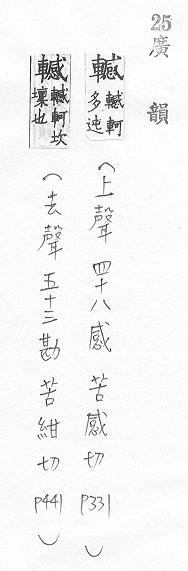 25廣韻
轗 轗軻
多迍
(上聲 四十八感 苦感切 P331)
轗 轗軻坎
也
(去聲 五十三勘 苦紺切 P441)